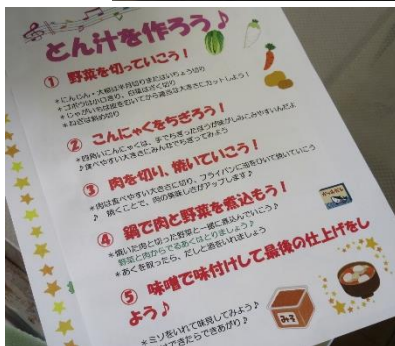 とん汁を作ろう♪
① 野菜を切っていこう！
＊にんじん・大根は半月切りまたはいちょう切り
＊ゴボウは小口切り、白菜はざく切り
＊じゃがいもは皮をむいてから適当な大きさにカットしよう！
＊ねぎは斜め切り
② こんにゃくをちぎろう！
＊四角いこんにゃくは、手でちぎったほうが味がしみこみやすいんだよ
♪食べやすい大きさにみんなでちぎってみよう
③ 肉を切り、焼いていこう！
＊肉は食べやすい大きさに切り、フライパンに油をひいて焼いていこう
♪ 焼くことで、肉の美味しさがアップします♪
④ 鍋で肉と野菜を煮込もう！
＊焼いた肉と切った野菜と一緒に煮込んでいこう♪
野菜と肉からでるあくはとりましょう♪
＊あくを取ったら、だしと酒をいれましょう
⑤ 味噌で味付けして最後の仕上げをし
よう♪
みそ
＊ミソをいれて味見してみよう♪
できたらできあがり♪